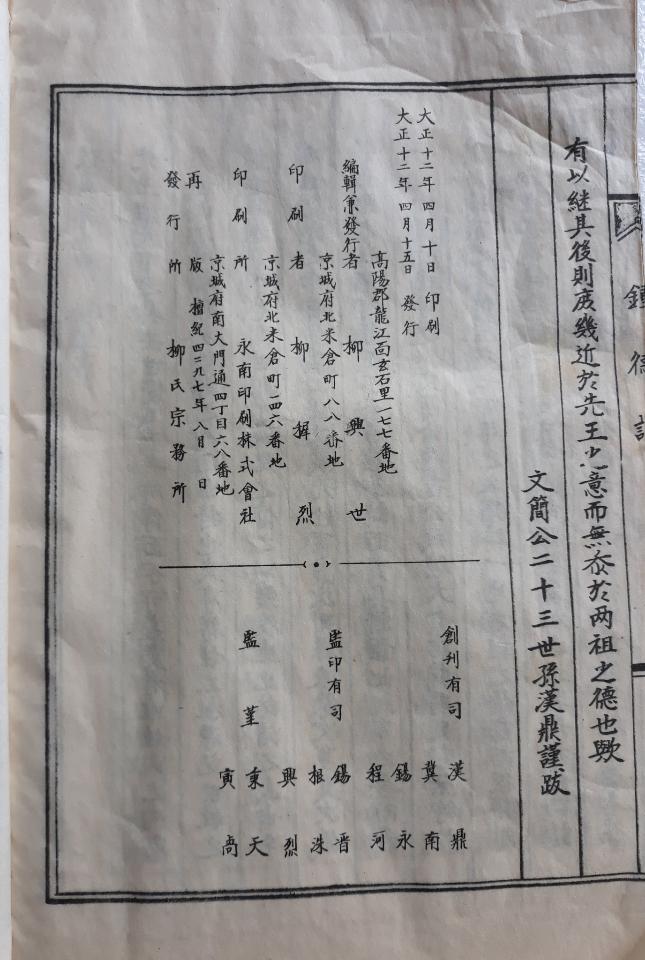 鍾德
有以継其後則庶幾近於先王之意而無忝於两祖之德也歟
文簡公二十三世孫漢鼎謹跋
大正十二年四月十日 印刷
大正十二年四月十五日 發行
高陽郡龍江面玄石里一七七番地
編輯兼發行者 柳興世
京城府北米倉町八八番地
印刷者 柳 烈
京城府北米倉町一四六番地
印刷所 永南印刷株式會社
京城府南大門通四丁目六八番地
再版 檀紀四二九七年八月 日
發行所 柳氏宗務所
創刊有司 漢鼎
冀南
錫永
程河
監印有司 錫晋
根洙
興烈
監董 東天
寅卨